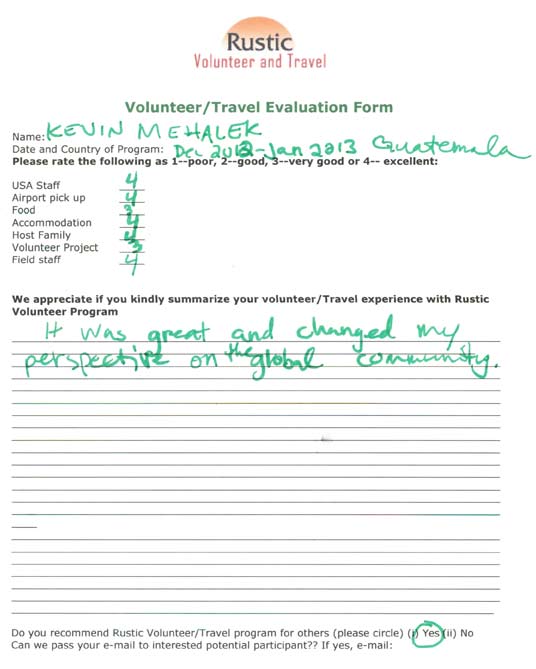 Rustic
Volunteer and Travel
Volunteer/Travel Evaluation Form
Name: KEVIN MEHALEK
Date and Country of Program: Dec 2012-Jan 2013 Guatemala
Please rate the following as 1--poor, 2--good, 3--very good or 4-- excellent:
USA Staff 4
Airport pick up 4
Food 3
Accommodation 4
Host Family 4
Volunteer Project 3
Field staff 4
We appreciate if you kindly summarize your volunteer/Travel experience with Rustic
Volunteer Program
It was great and changed my
perspective on the global community.
Do you recommend Rustic Volunteer/Travel program for others (please circle) (i) Yes (ii) No
Can we pass your e-mail to interested potential participant?? If yes, e-mail: